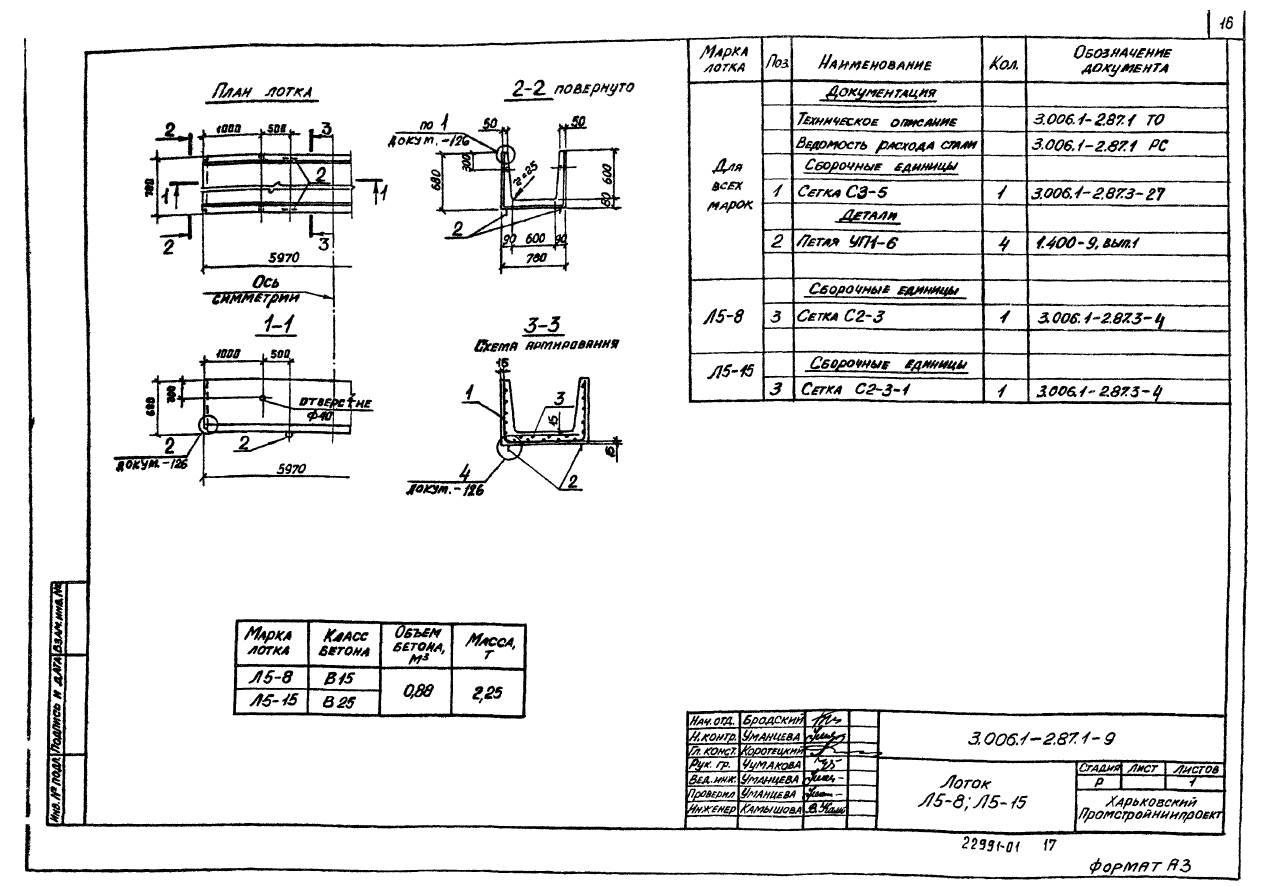 16
План лотка
2 1000 500 3
780
1 2 1
2 3
5970
Ось
симметрии
2-2 повернуто
по 1
докум.-126
50 50
680 300 600 80
2
90 600 90
780
1-1
1000 500
680
отверстие
ф40
2
докум.-126
2
5970
3-3
Схема армирования
15
1 3
15
15
4
докум.-126
2
Марка лотка Поз. Наименование Кол. Обозначение документа
Документация
Техническое описание 3.006.1-2.87.1 ТО
Ведомость расхода стали 3.006.1-2.87.1 РС
Для всех марок
Сборочные единицы
1 Сетка С3-5 1 3.006.1-2.87.3-27
Детали
2 Петля УП1-6 4 1.400-9, вып.1
Сборочные единицы
Л5-8 3 Сетка С2-3 1 3.006.1-2.87.3-4
Л5-15 Сборочные единицы
3 Сетка С2-3-1 1 3.006.1-2.87.3-4
Марка лотка Класс бетона Объем бетона, м³ Масса, т
Л5-8 В15 0,88 2,25
Л5-15 В25
Инв.№ подл. Подпись и дата Взам.инв.№
Нач.отд. Бродский
Н.контр. Уманцева
Гл.конст. Коротецкий
Рук. гр. Чумакова
Вед.инж. Уманцева
Проверил Уманцева
Инженер Камышова
3.006.1-2.87.1-9
Лоток
Л5-8; Л5-15
Стадия Лист Листов
Р 1
Харьковский
Промстройниипроект
22991-01 17
Формат А3